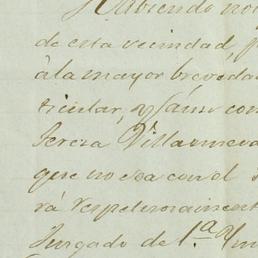 Habiendo no
de esta vecindad, p
á la mayor brevedad
ticular, y aun con
Pereza Villanueva
que no sea con el
rá respetuosament
Juzgado de 1.ª Yn